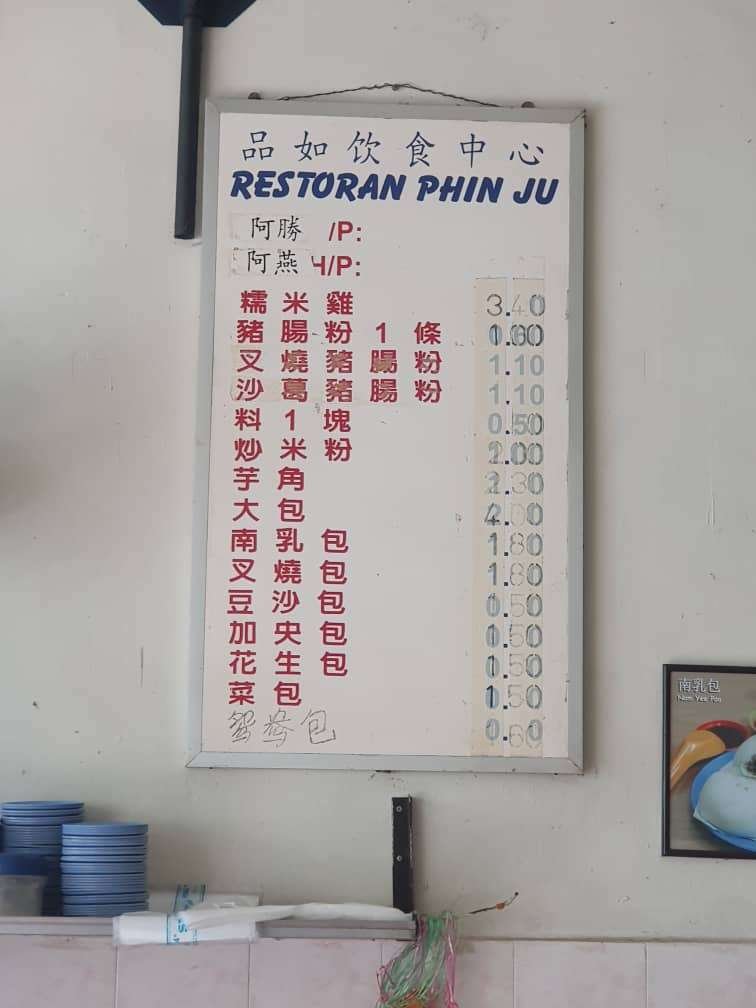 品如饮食中心
RESTORAN PHIN JU
阿勝 /P:
阿燕 H/P:
糯米雞 3.40
豬腸粉1條
叉燒豬腸粉 1.10
沙葛豬腸粉 1.10
料1塊 0.50
炒米粉
芋角
大包 4.00
南乳包 1.80
叉燒包 1.80
豆沙包
加央包
花生包
菜包 1.50
鴛鴦包
南乳包
Nam Yee Pao